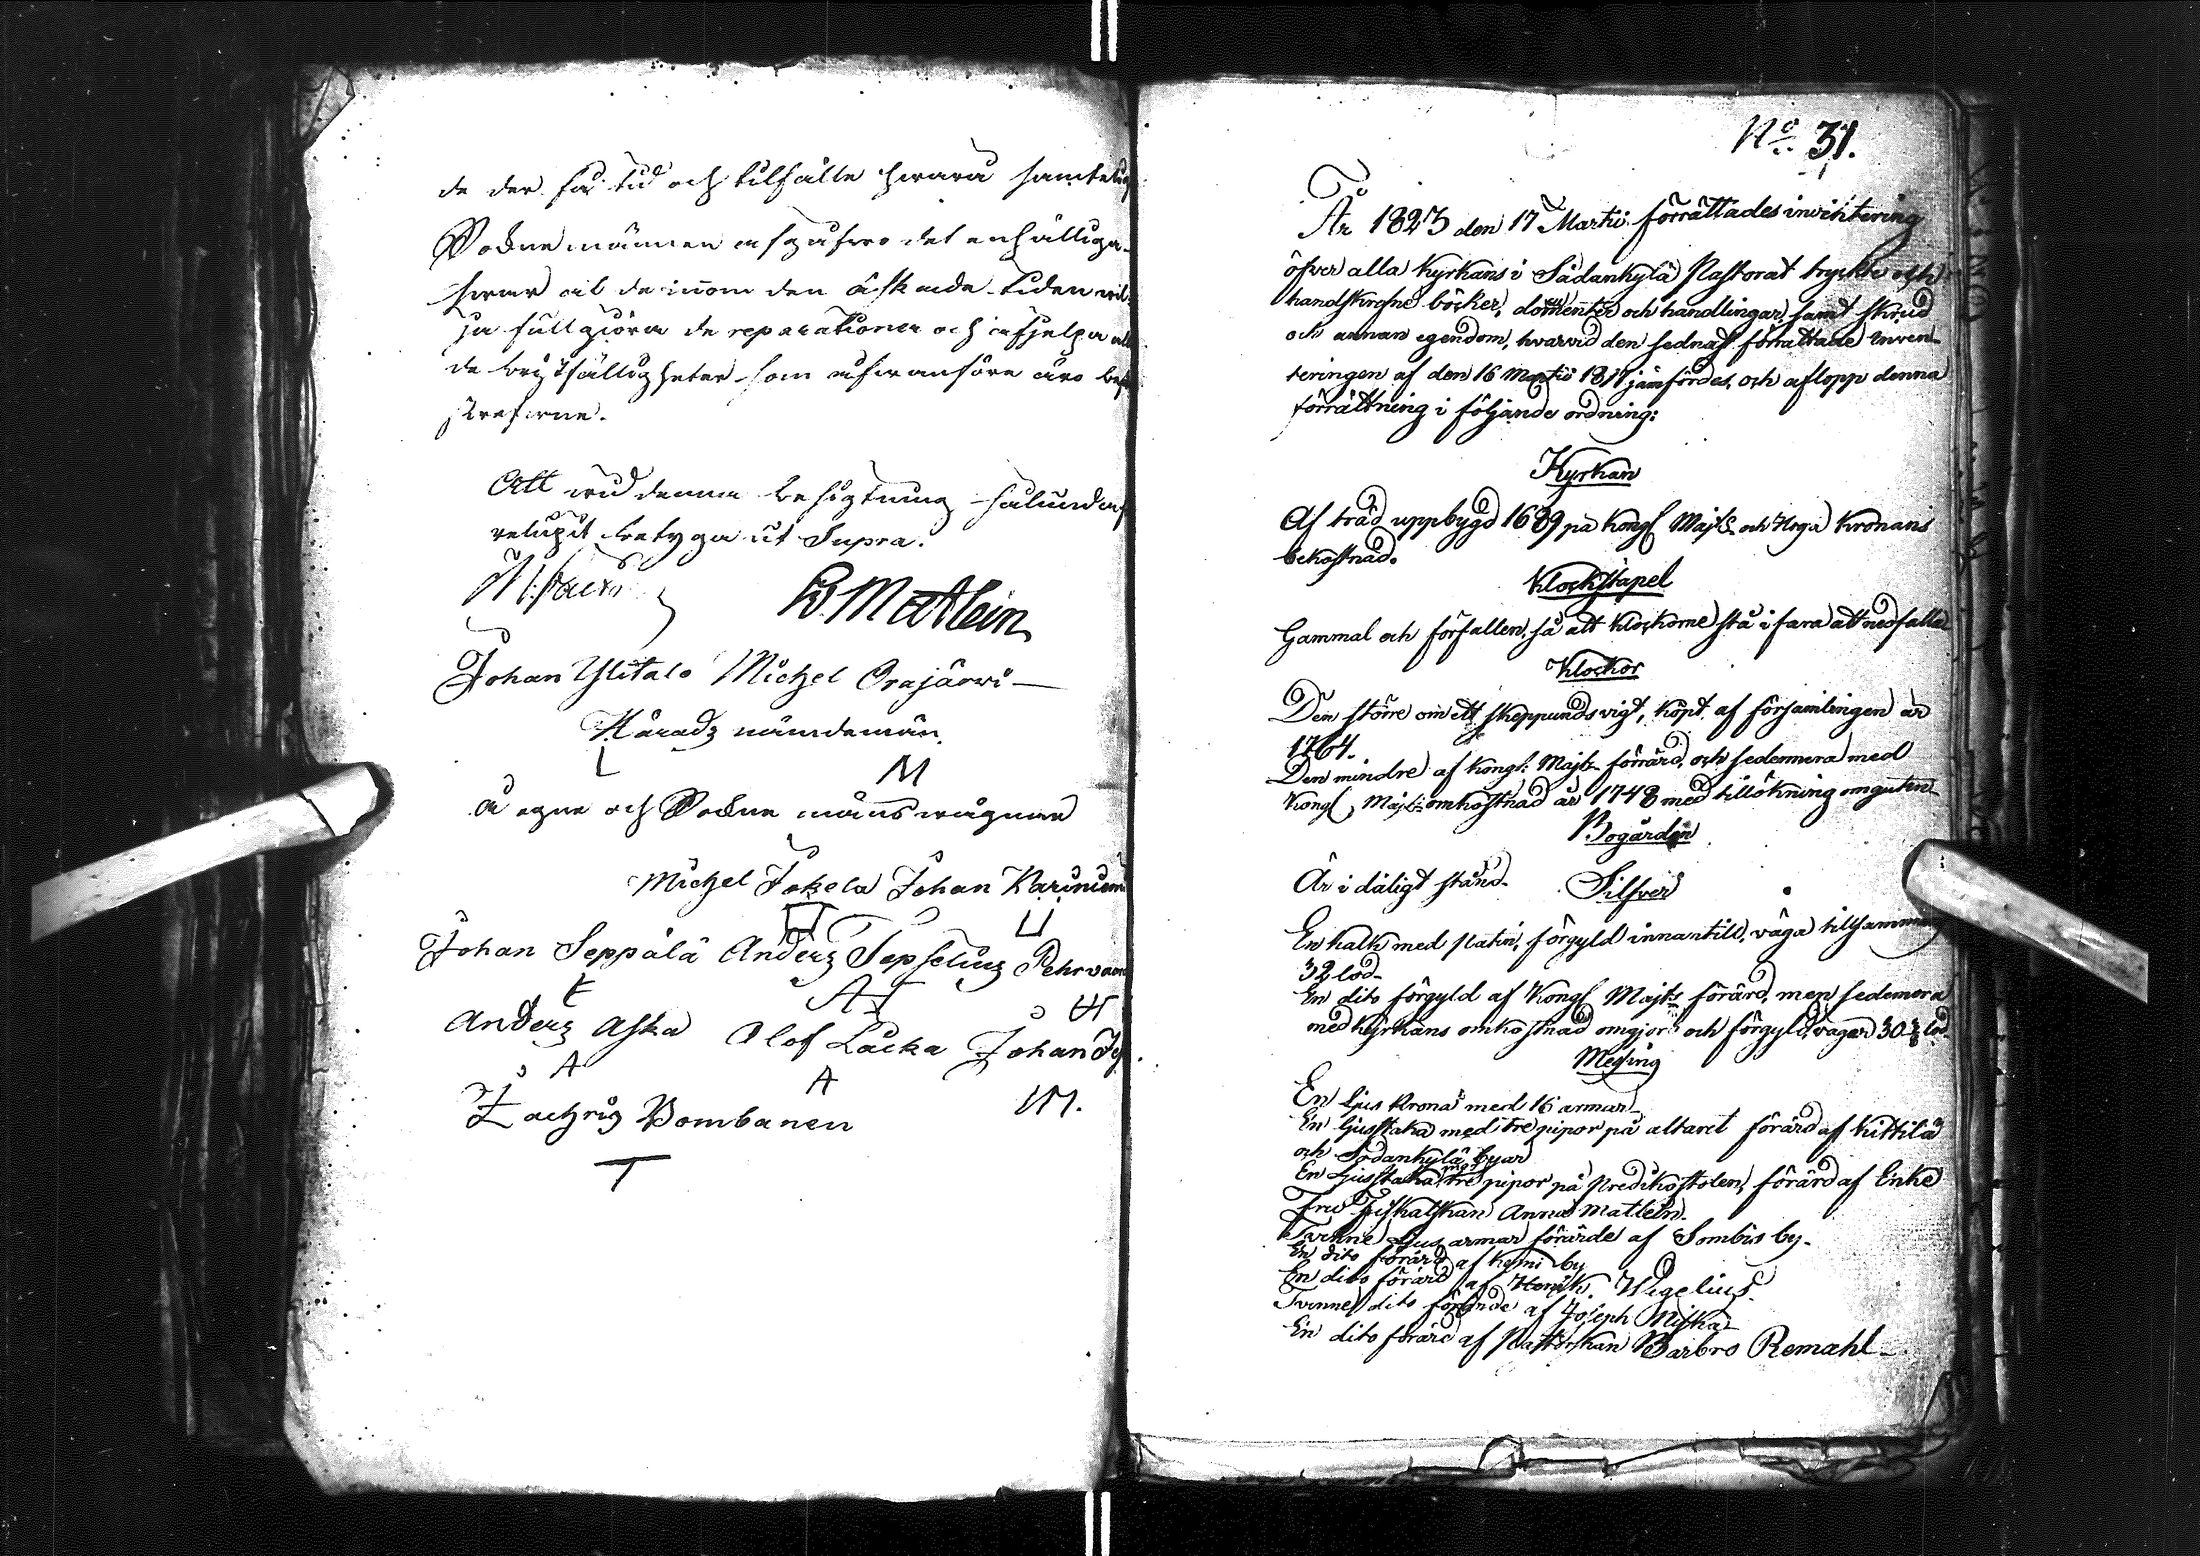 de der få tid och tilfälle swara samtelig
Sockne männen afgufwo det enhälliga
swar at de innom den åskade tiden wil
ja fullgiöra de reparationer och afhjelpa alla
de bristfälligheter som ofwanföre äro besk
skrefwne.
Att wid denna besigtning sålundas
relupit betyga ut Supra.
B. Matlein
Johan Ylitalo Michel Orajärwi
Härads nämdemän.
L M
å egne och Sockne mäns wägnar
Michel Jokela Johan Kariniemi
Johan Seppälä Anders Sepselius Pehr
Anders Aska Olof Låcka Johan
A A M.
Zachris Pombanen
T
No 31.
År 1823 den 17 Martii förrättades inventering
öfver alla Kyrkans i Sådankylä Pastorat tryckte och
handskrefne böcker, documenter och handlingar, samt skrud
och annan egendom, hvarvid den sednast förrättade inven-
teringen af den 16 Martii 1817 jämfördes, och aflopp denna
förrättning i följande ordning:
Kyrkan
Af träd uppbygd 1689 på Kongl Majts och Höga Kronans
bekostnad.
Klockstapel
Gammal och förfallen, så att klockorne stå i fara att nedfalla
Klockor
Den större om ett skeppunds vigt, köpt af församlingen år
1764.
Den mindre af Kongl: Majts förärd, och sedermera med
Kongl Majts omkostnad år 1748 med tillökning omguten
Bogården
Är i dåligt stånd.
Silfver
En kalk med Patin, förgyld innantill, väga tillsamman
32 lod.
En dito förgyld af Kongl Majts förärd, men sedermera
med Kyrkans omkostnad omgjord och förgyld, vager 30 lod.
Messing
En Ljus Krona med 16 armar
En Ljusstaka med tre pipor på altaret förärd af Kittilä
och Sodankylä byar
En Ljusstaka med tre pipor på Predikostolen, förärd af Enke
Fru Fiskalskan Anna Matlein.
Tvenne Ljus armar förärde af Sombis by.
En dito förärd af Kemi by
En dito förärd af Henrik Wigelius.
Tvenne dito förärde af Joseph Niska
En dito förärd af Pastorskan Barbro Remahl